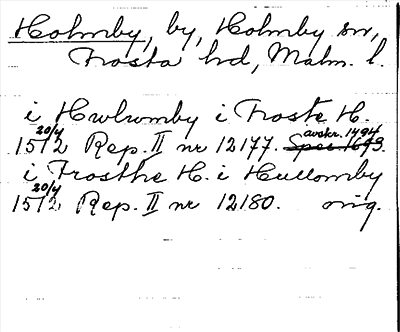 Holmby, by, Holmby sn,
Frosta hd, Malm. l.
i Hwlwmby i Froste H.
1512 20/4 Rep. II nr 12177. avskr. 1494
i Frosthe H. i Hullomby
1512 20/4 Rep. II nr 12180. orig.